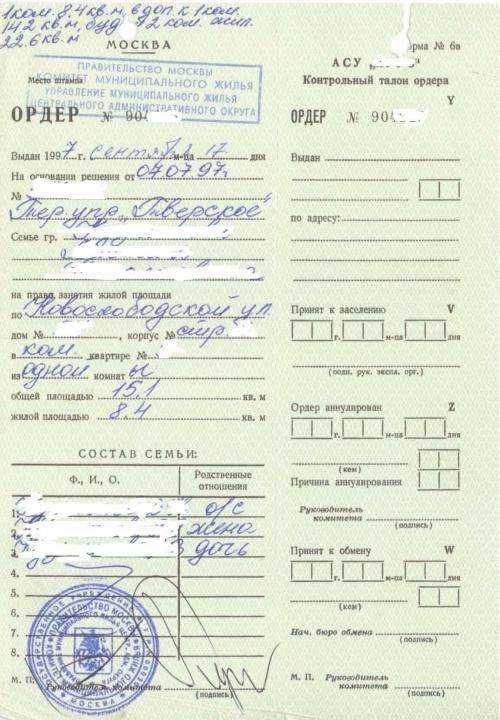 1ком. 8.4 кв.м, в доп. к 1ком.
14.2 кв.м, буд 2 ком. жил.
22.6 кв.м
МОСКВА
Место штампа
ПРАВИТЕЛЬСТВО МОСКВЫ
КОМИТЕТ МУНИЦИПАЛЬНОГО ЖИЛЬЯ
УПРАВЛЕНИЕ МУНИЦИПАЛЬНОГО ЖИЛЬЯ
ЦЕНТРАЛЬНОГО АДМИНИСТРАТИВНОГО ОКРУГА
ОРДЕР № 90
Выдан 1997 г. сентября м-ца 17 дня
На основании решения от 07.07.97г.
№
Тер.упр. "Тверское"
Семье гр.
на право занятия жилой площади
по Новослободской ул.
дом № , корпус № стр
в ком квартире №
из одной комнат ы
общей площадью 15.1 кв. м
жилой площадью 8.4 кв. м
СОСТАВ СЕМЬИ:
Ф., И., О. Родственные отношения
1. о/с
2. жена
3. дочь
4.
5.
6.
7.
8.
М. П. Руководитель комитета
(подпись)
ПРАВИТЕЛЬСТВО МОСКВЫ
МОСКВА
рма № 6в
АСУ „
Контрольный талон ордера
Y
ОРДЕР № 90
Выдан
по адресу:
Принят к заселению V
г. м-ца дня
(подп. рук. экспл. орг.)
Ордер аннулирован Z
г. м-ца дня
(кем)
Причина аннулирования
Руководитель комитета
(подпись)
Принят к обмену W
г. м-ца дня
(кем)
Нач. бюро обмена
(подпись)
М. П. Руководитель комитета
(подпись)